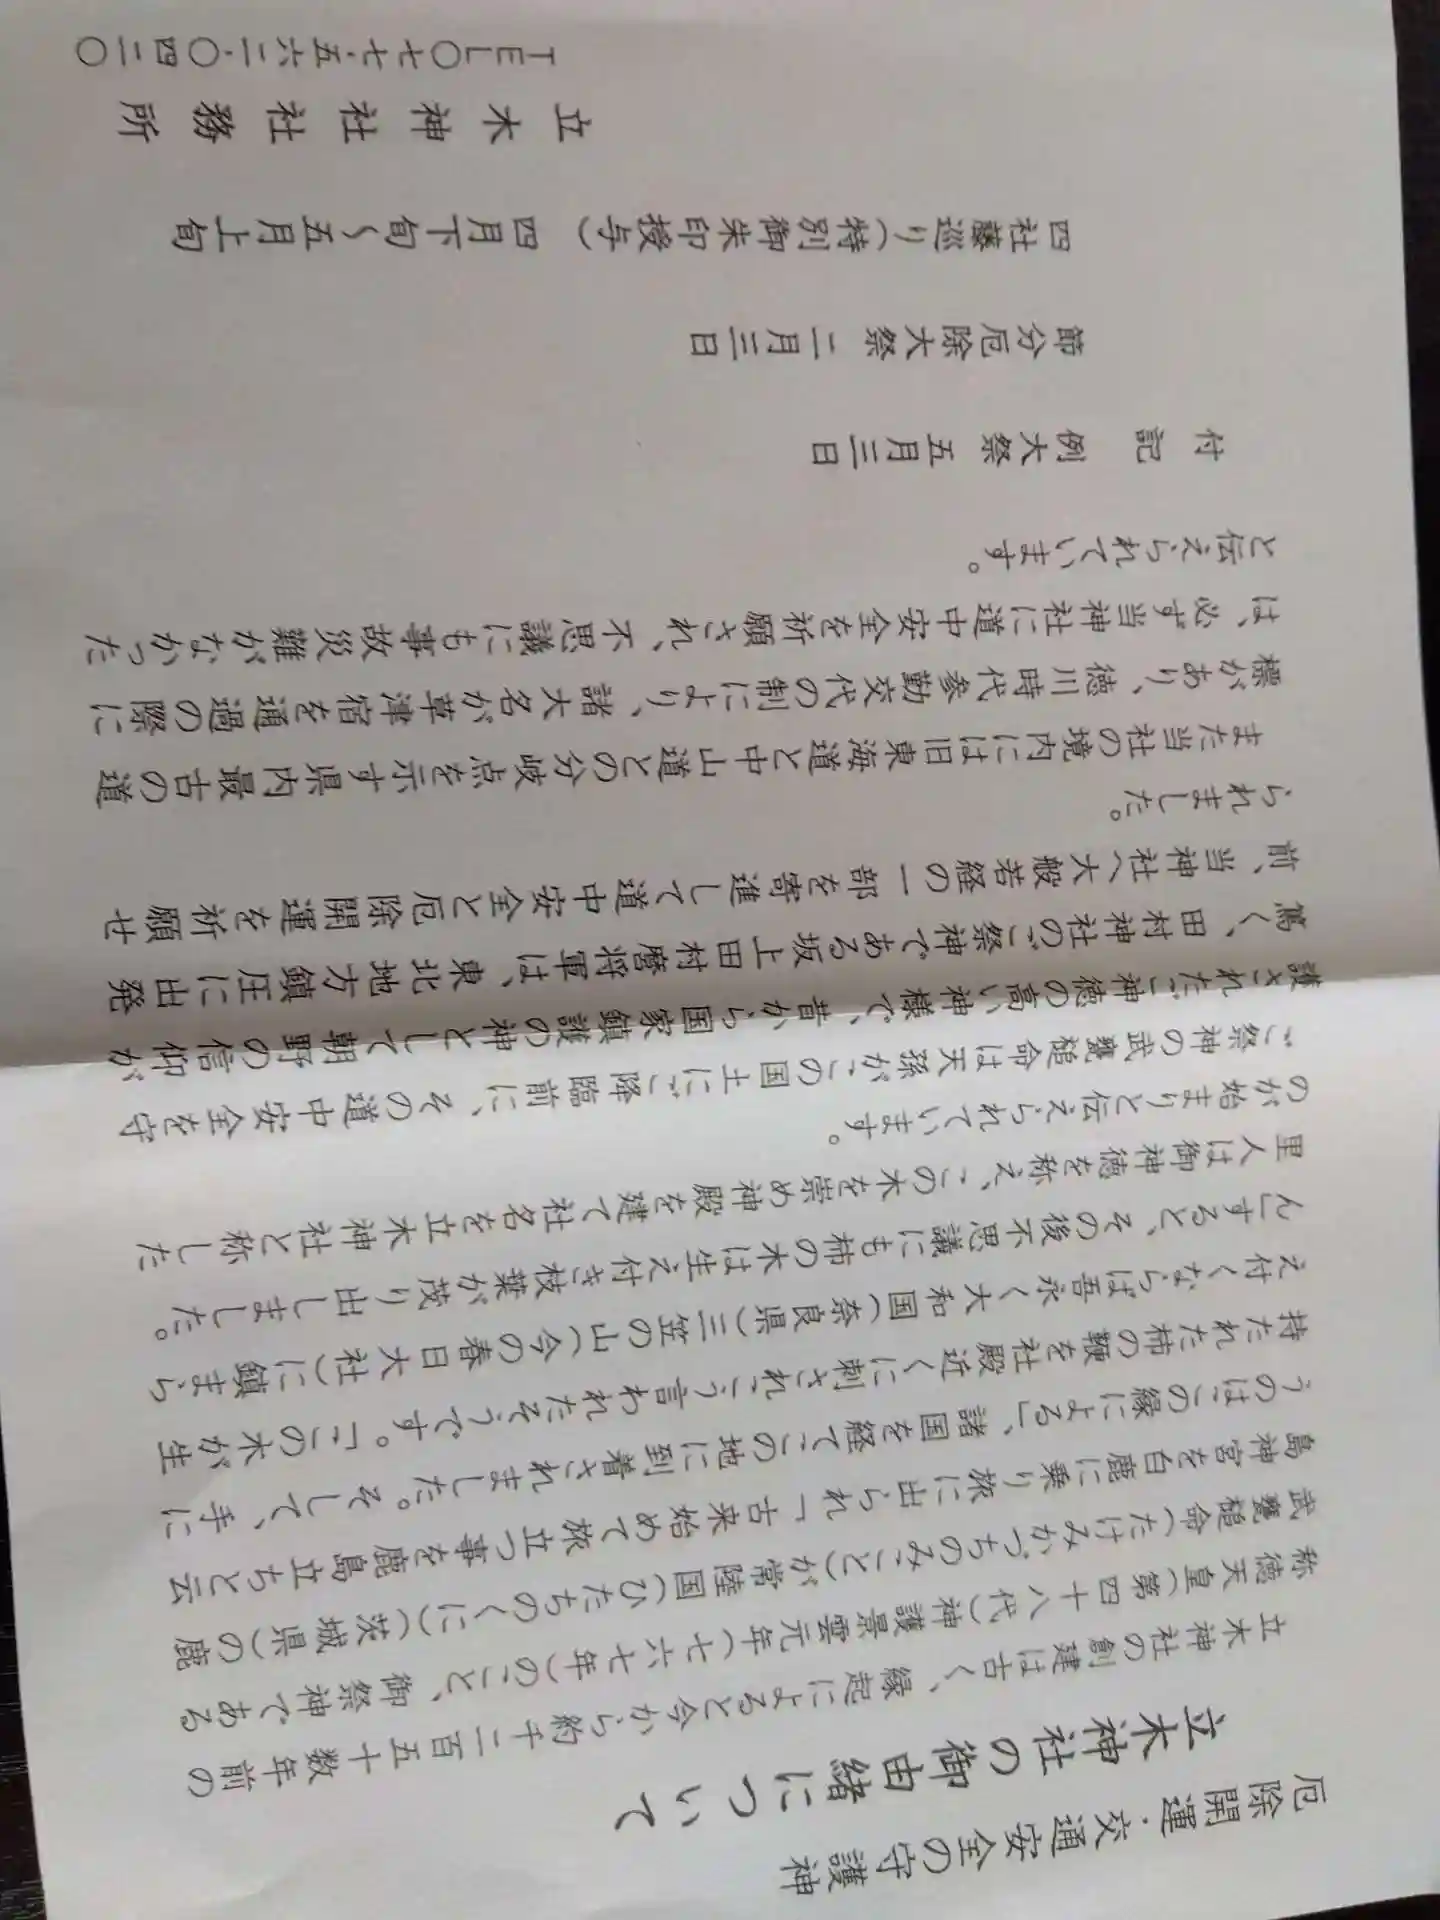 厄除開運・交通安全の守護神
立木神社の御由緒について
立木神社の創建は古く、縁起によると今から約千二百五十数年前の
称徳天皇(第四十八代)神護景雲元年(七六七年)のこと、御祭神である
武甕槌命(たけみかづちのみこと)が常陸国(ひたちのくに)(茨城県)の鹿
島神宮を白鹿に乗り旅に出られ「古来始めて旅立つ事を鹿島立ちと云
うのはこの縁による」、諸国を経てこの地に到着されました。そして、手に
持たれた柿の鞭を社殿近くに刺されこう言われたそうです。「この木が生
え付くならば吾永く大和国(奈良県)三笠の山(今の春日大社)に鎮まら
ん」すると、その後不思議にも柿の木は生え付き枝葉が茂り出しました。
里人は御神徳を称え、この木を崇め神殿を建て社名を立木神社と称した
のが始まりと伝えられています。
ご祭神の武甕槌命は天孫がこの国土にご降臨前に、その道中安全を守
護されたご神徳の高い神様で、昔から国家鎮護の神として朝野の信仰が
篤く、田村神社のご祭神である坂上田村麿将軍は、東北地方鎮圧に出発
前、当神社へ大般若経の一部を寄進して道中安全と厄除開運を祈願せ
られました。
また当社の境内には旧東海道と中山道との分岐点を示す県内最古の道
標があり、徳川時代参勤交代の制により、諸大名が草津宿を通過の際に
は、必ず当神社に道中安全を祈願され、不思議にも事故災難がなかった
と伝えられています。
付記 例大祭 五月三日
節分厄除大祭 二月三日
四社藤巡り(特別御朱印授与) 四月下旬~五月上旬
立木神社社務所
TEL〇七七・五六二・〇四二〇